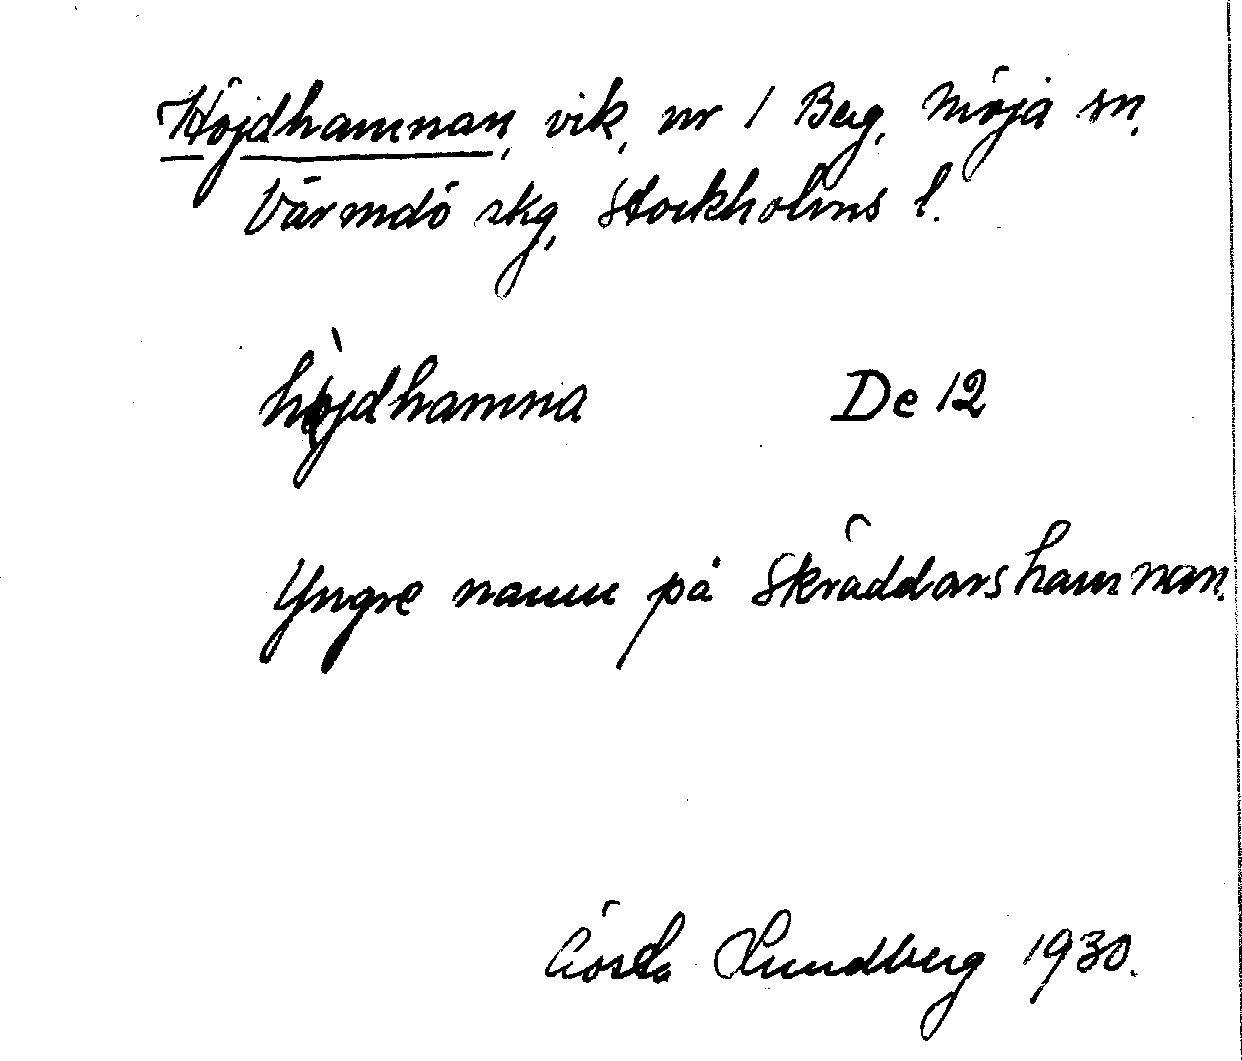 Höjdhamnan, vik, nr 1 Berg, Möja sn,
Värmdö skg, Stockholms l.
hø̀jdhamna De 12
Yngre namn på Skräddarshamnan.
Gösta Lundberg 1930.